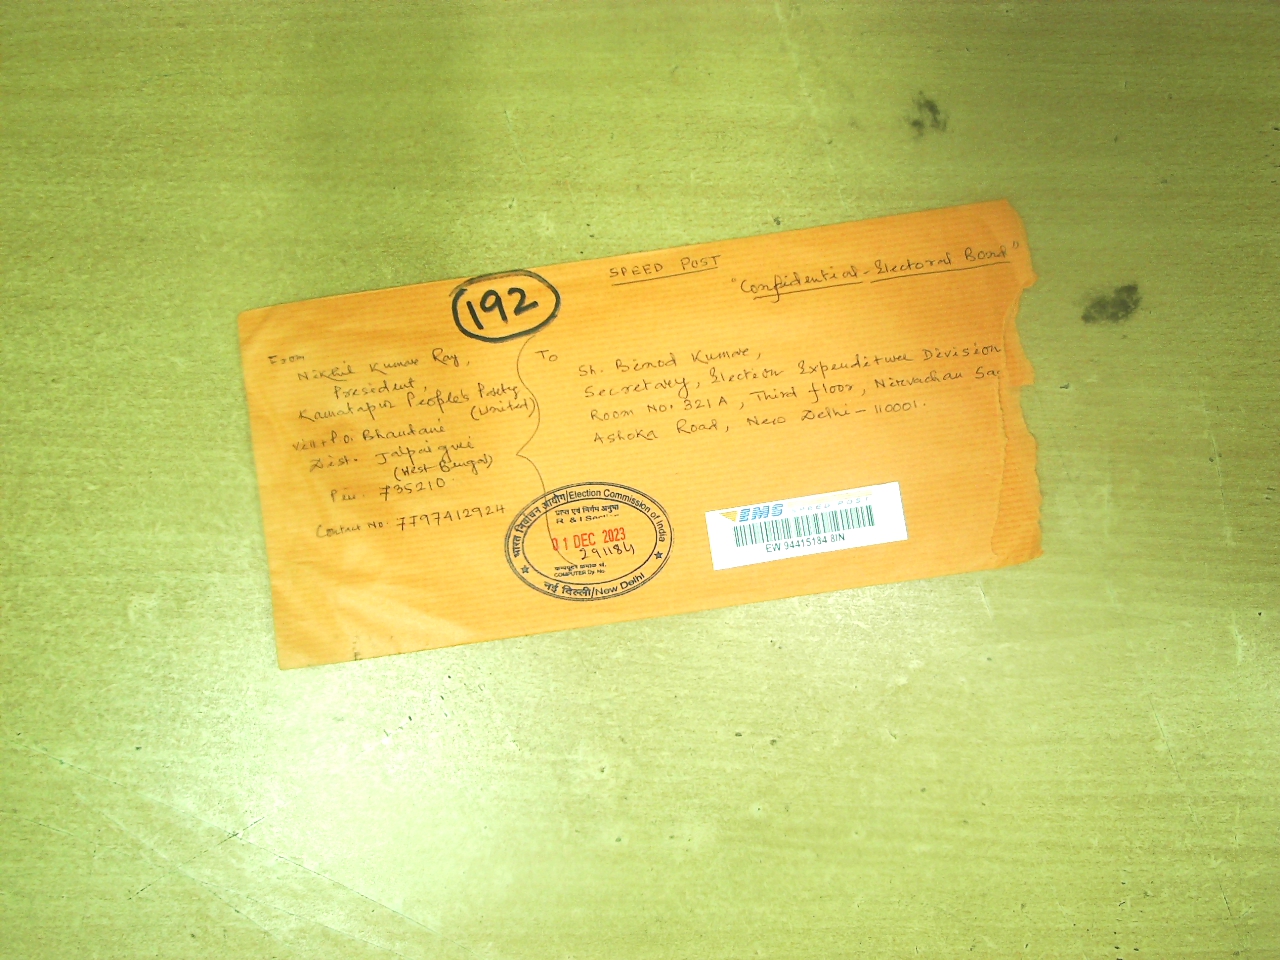 192
SPEED POST
"Confidential - Electoral Bond"
From
Nikhil Kumar Ray,
President,
Kamatapur People's Party
(United)
Vill + P.O. Bhandani
Dist. Jalpaiguri
(West Bengal)
Pin. 735210
Contact No: 7797412924
To
Sh. Binod Kumar,
Secretary, Election Expenditure Division
Room No. 321A, Third floor, Nirvachan Sa
Ashoka Road, New Delhi - 110001.
भारत निर्वाचन आयोग/Election Commission of India
प्राप्त एवं निर्गम अनुभाग
R & I Section
01 DEC 2023
291184
COMPUTER Dy. No.
नई दिल्ली/New Delhi
EMS SPEED POST
EW 94415184 8IN